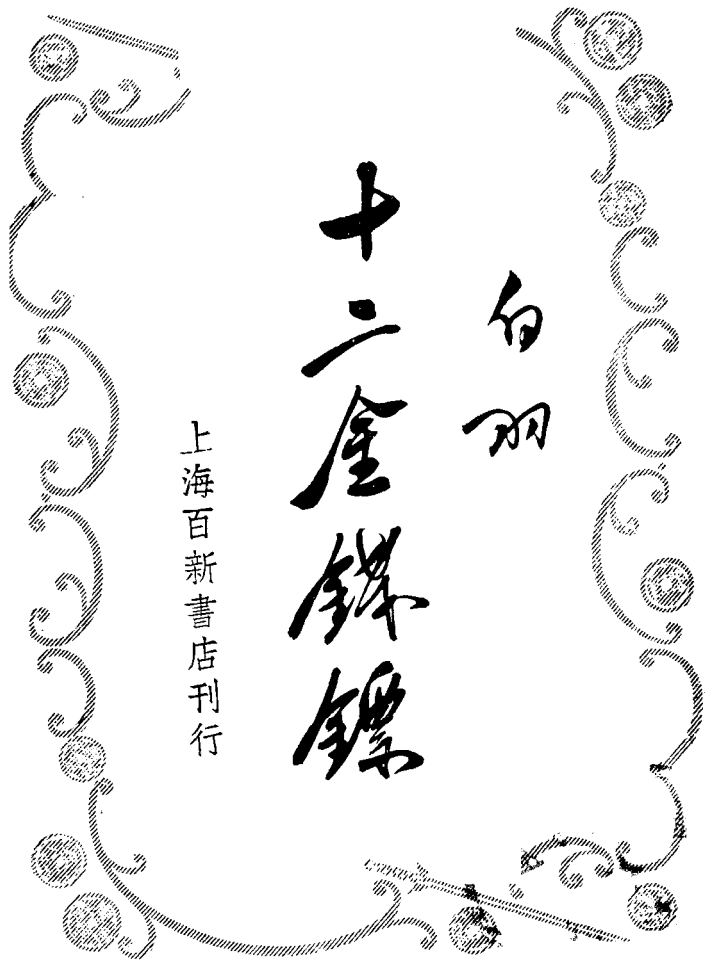 白羽
十二金錢鏢
上海百新書店刊行